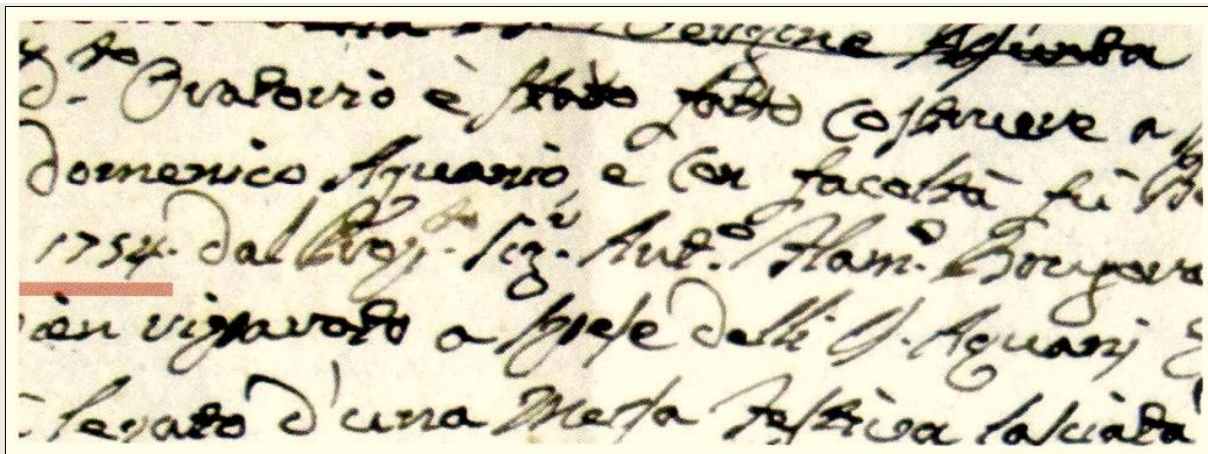 Vergine Assunta
d.to Oratorio è stato fatto costruere a
Domenico Aquario, e con facoltà fù
1754. dal Sig.r Ant.o Flam.o
vien riparato a spese delli SS. Aquarj
levato d'una Messa festiva lasciata